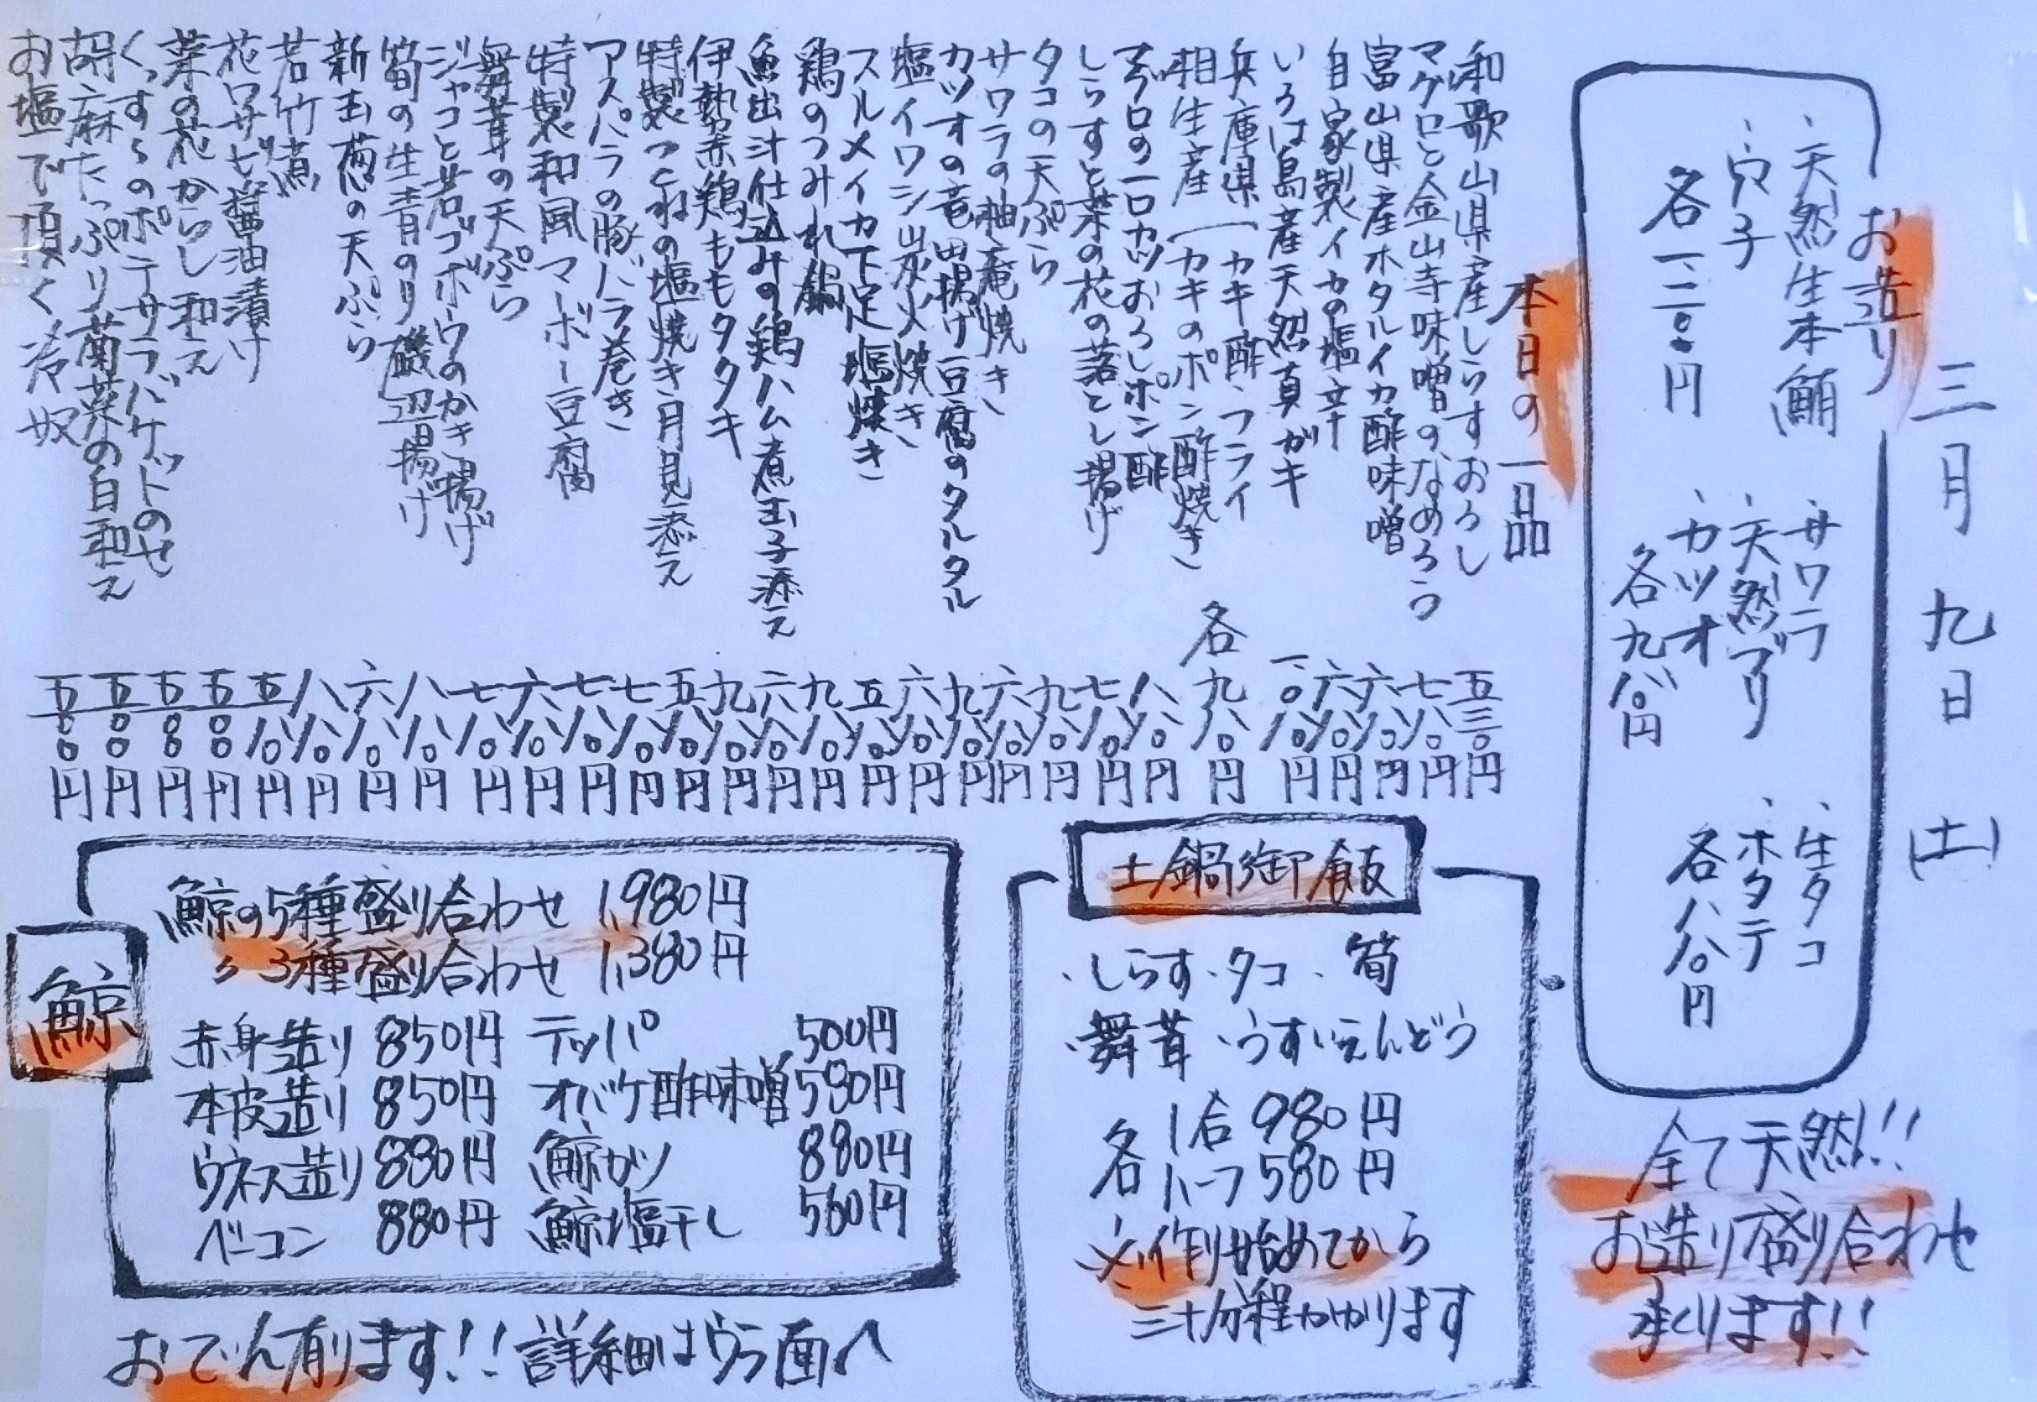 三月九日(土)
お造り
・天然生本鮪
・穴子
各一二八〇円
・サワラ
・天然ブリ
・カツオ
各九八〇円
・生タコ
・ホタテ
各八八〇円
全て天然!!
お造り盛り合わせ
承ります!!
本日の一品
和歌山県産しらすおろし 五三〇円
マグロと金山寺味噌のなめろう 七八〇円
富山県産ホタルイカ酢味噌 六八〇円
自家製イカの塩辛 六八〇円
いろは島産天然真ガキ 一〇八〇円
兵庫県相生産 カキ酢・フライ カキのポン酢焼き 各九八〇円
マグロの一口カツおろしポン酢 八八〇円
しらすと菜の花の落とし揚げ 七八〇円
タコの天ぷら 九八〇円
サワラの柚庵焼き 六八〇円
カツオの竜田揚げ豆腐のタルタル 九八〇円
塩イワシ炭火焼き 六八〇円
スルメイカ下足塩焼き 五八〇円
鶏のつみれ鍋 九八〇円
魚出汁仕込みの鶏ハム煮玉子添え 六八〇円
伊勢赤鶏ももタタキ 九八〇円
特製つくねの塩焼き月見添え 五八〇円
アスパラの豚バラ巻き 七八〇円
特製和風マーボー豆腐 七八〇円
舞茸の天ぷら 六八〇円
ジャコと若ゴボウのかき揚げ 七八〇円
筍の生青のり磯辺揚げ 八八〇円
新玉葱の天ぷら 六八〇円
若竹煮 八八〇円
花ワサビ醤油漬け 五八〇円
菜の花からし和え 五〇〇円
くっすらのポテサラバケットのせ 五〇〇円
胡麻たっぷり菊菜の白和え 五〇〇円
お塩で頂く冷奴 五〇〇円
土鍋御飯
・しらす・タコ・筍
・舞茸・うすいえんどう
各 1合 980円
ハーフ 580円
※作り始めてから
三十分程かかります
鯨
鯨の5種盛り合わせ 1,980円
〃 3種盛り合わせ 1,380円
赤身造り 850円 テッパ 500円
本皮造り 850円 オバケ酢味噌 580円
ウネス造り 880円 鯨カツ 880円
ベーコン 880円 鯨塩干し 560円
おでん有ります!!詳細はウラ面へ